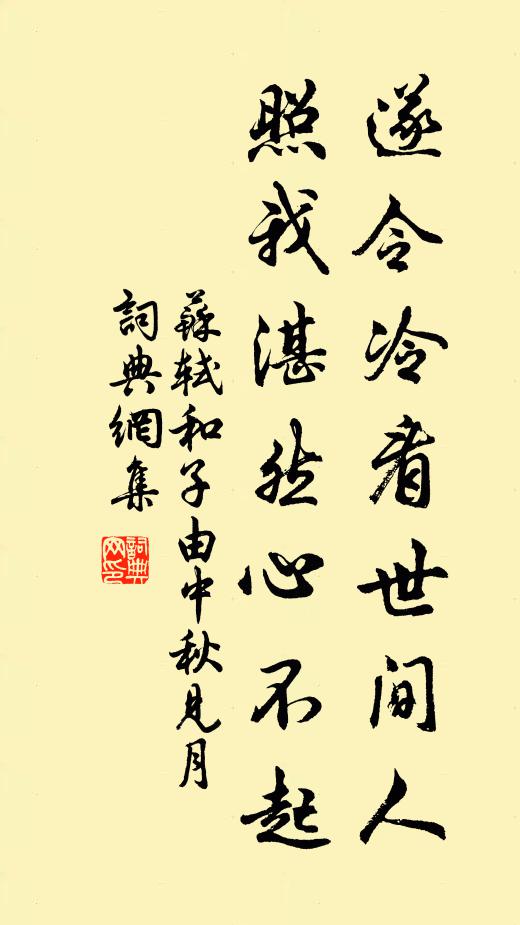 遂令冷看世間人
照我湛然心不起
蘇軾和子由中秋見月
詞典網集
詞典網印